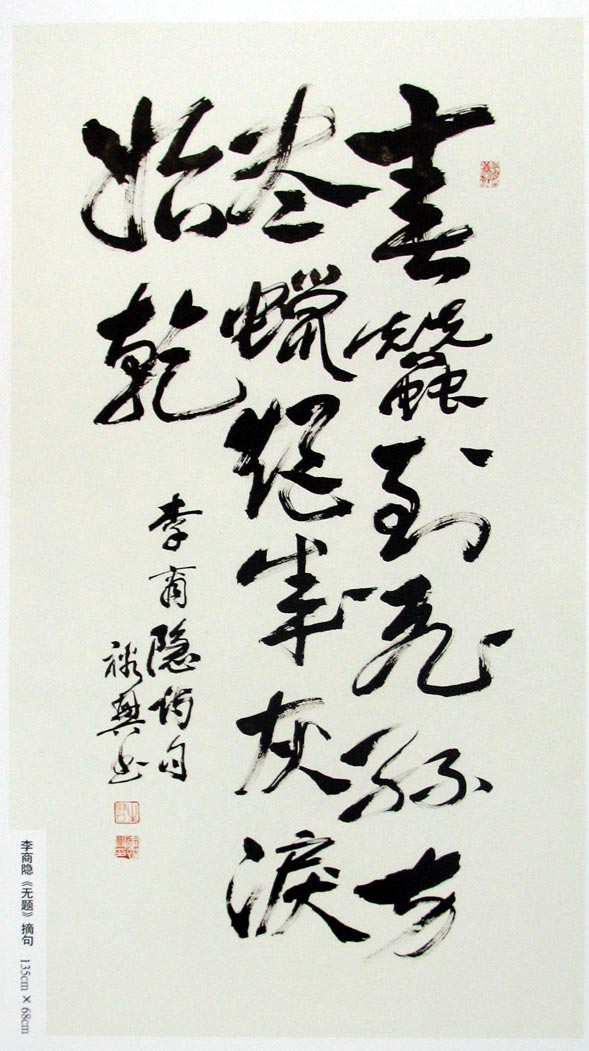 春蠶到死絲方
尽蠟炬成灰淚
始乾
李商隐诗句
興书
李商隐《无题》摘句 135cm × 68cm